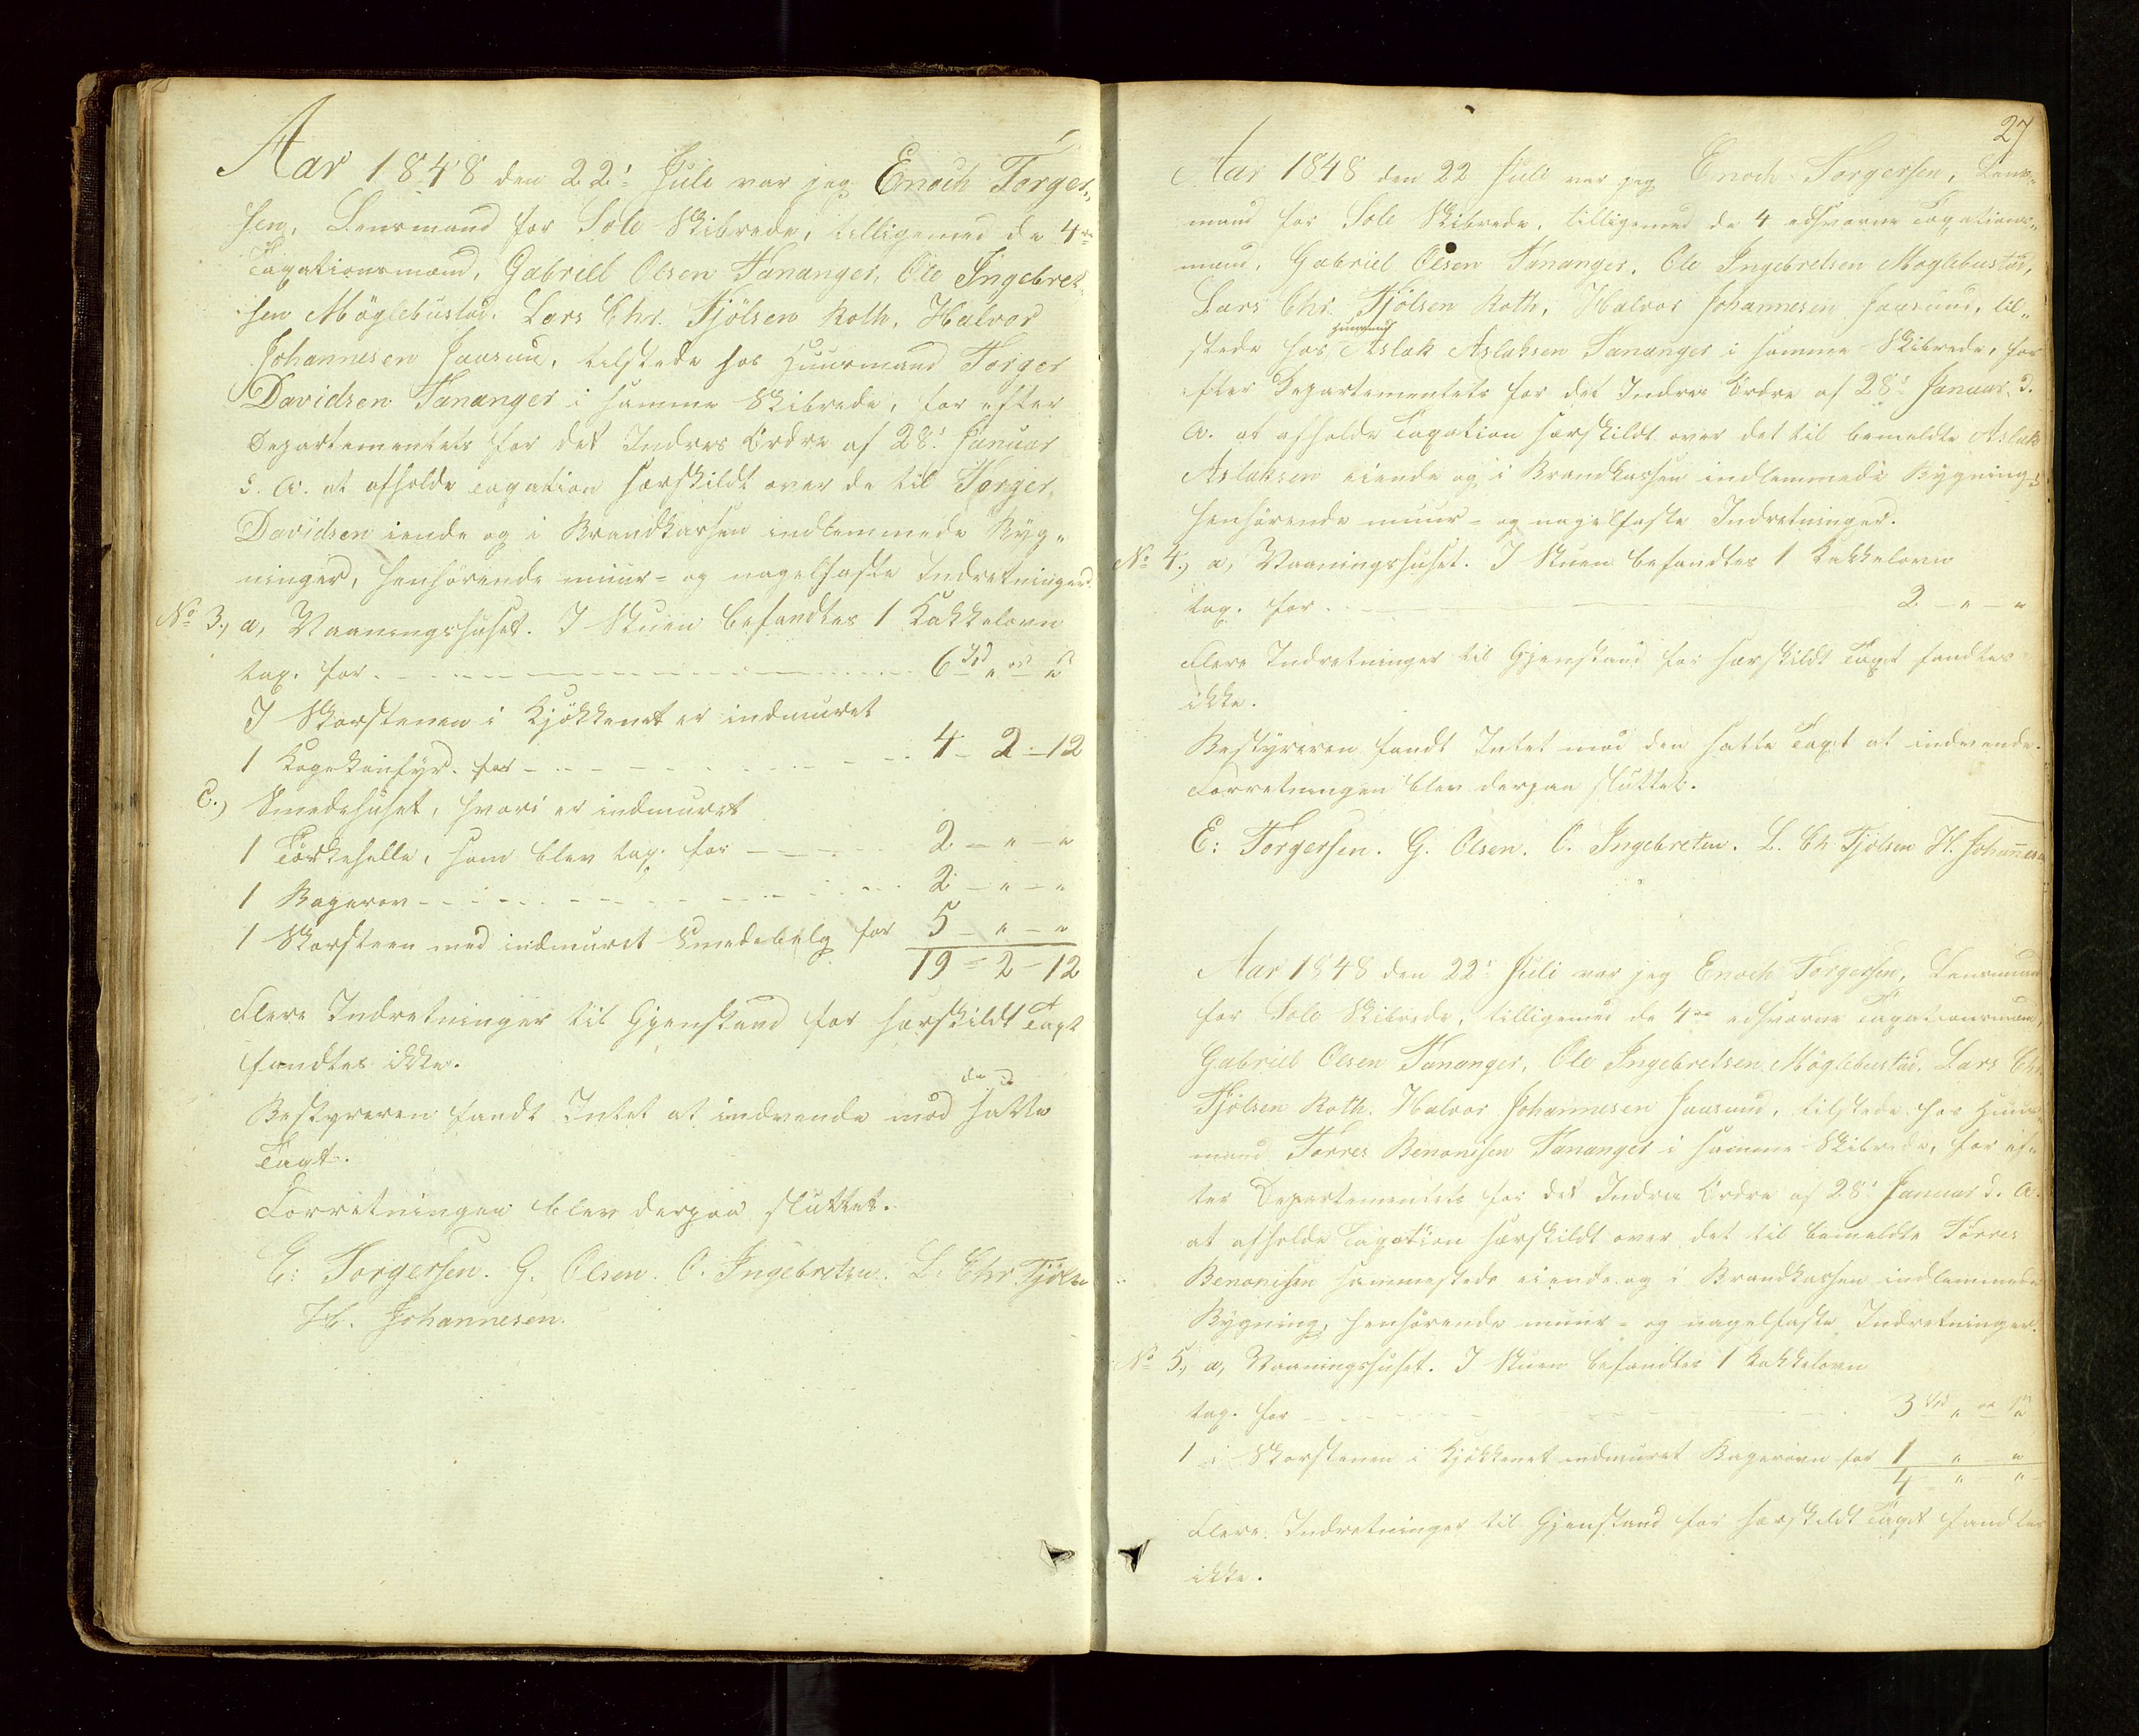 Aar 1848 den 22' Juli var jeg Enoch Torger„
sen, Lensmand for Sole Skibrede, tilligemed de 4re
Taxationsmænd, Gabriel Olsen Tananger, Ole Ingebret„
sen Møglebustad, Lars Chr. Tjölsen Roth, Halvor
Johannesen Jaasund, tilstede hos Huusmand Torger
Davidsen Tananger i samme Skibrede, for efter
Departementets for det Indres Ordre af 28' Januar
d. A. at afholde Taxation særskildt over de til Torger
Davidsen eiende og i Brandkassen indlemmede Byg„
ninger, henhörende muur- og nagelfaste Indretninger.
No 3., a, Vaaningshuset. I Stuen befandtes 1 Kakkelovn
tax. for - - - 6 Spd „ ort „ s
I Skorstenen i Kjökkenet er indmuret
1 Kogekonfyr. for - - - 4 - 2 - 12
C.) Smedehuset, hvori er indmuret
1 Törkehelle, som blev tax. for - - - 2 - „ - „
1 Bagerov - - - 2 - „ - „
1 Skorsteen med indmuret Smedebelg for 5 - „ - „
19 - 2 - 12
Flere Indretninger til Gjenstand for særskildt Taxt
fandtes ikke.
Bestyreren fandt Intet at indvende mod den satte
Taxt.
Forretningen blev derpaa sluttet.
E: Torgersen. G. Olsen. O. Ingebretsen. L. Chr Tjölsen
H. Johannesen.
27
Aar 1848 den 22 Juli var jeg Enoch Torgersen, Lens„
mand for Sole Skibrede, tilligemed de 4 edsvorne Taxations„
mænd, Gabriel Olsen Tananger, Ole Ingebretsen Møglebustad,
Lars Chr. Tjölsen Roth, Halvor Johannesen Jaasund, til„
stede hos Huusmand Aslak Aslaksen Tananger i samme Skibrede, for
efter Departementets for det Indres Ordre af 28' Januar d.
A. at afholde Taxation særskildt over det til bemeldte Aslak
Aslaksen eiende og i Brandkassen indlemmede Bygning,
henhörende muur- og nagelfaste Indretninger.
No 4., a, Vaaningshuset. I Stuen befandtes 1 Kakkelovn
tax. for - - - 2 - „ - „
Flere Indretninger til Gjenstand for særskildt Taxt fandtes
ikke.
Bestyreren fandt Intet mod den satte Taxt at indvende.
Forretningen blev derpaa sluttet.
E: Torgersen. G. Olsen. O. Ingebretsen. L. Ch Tjölsen H. Johannesen
Aar 1848 den 22' Juli var jeg Enoch Torgersen, Lensmand
for Sole Skibrede, tilligemed de 4re edsvorne Taxationsmænd,
Gabriel Olsen Tananger, Ole Ingebretsen Møglebustad, Lars Chr.
Tjölsen Roth, Halvor Johannesen Jaasund, tilstede hos Huus„
mand Törres Benonisen Tananger i samme Skibrede, for ef„
ter Departementets for det Indres Ordre af 28' Januar d. A.
at afholde Taxation særskildt over det til bemeldte Törres
Benonisen sammesteds eiende og i Brandkassen indlemmede
Bygning, henhörende muur- og nagelfaste Indretninger.
No 5., a, Vaaningshuset. I Stuen befandtes 1 Kakkelovn
tax. for - - - 3 Spd „ ort „ s
1 i Skorstenen i Kjökkenet indmuret Bagerovn for 1 „ „
4 „ „
Flere Indretninger til Gjenstand for særskildt Taxt fandtes
ikke.